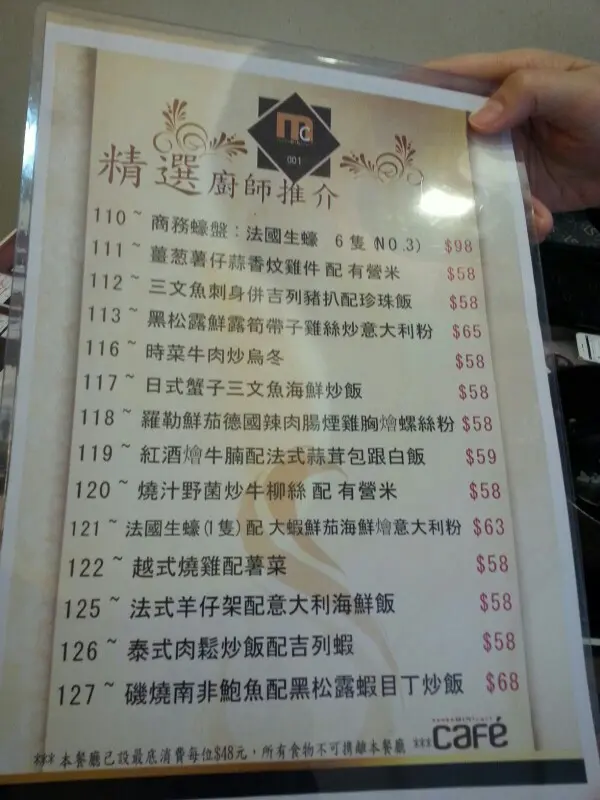 mc
001
精選廚師推介
110 ~ 商務蠔盤：法國生蠔 6 隻 (NO.3) $98
111 ~ 薑葱薯仔蒜香炆雞件 配 有營米 $58
112 ~ 三文魚刺身併吉列豬扒配珍珠飯 $58
113 ~ 黑松露鮮露筍帶子雞絲炒意大利粉 $65
116 ~ 時菜牛肉炒烏冬 $58
117 ~ 日式蟹子三文魚海鮮炒飯 $58
118 ~ 羅勒鮮茄德國辣肉腸煙雞胸燴螺絲粉 $58
119 ~ 紅酒燴牛腩配法式蒜茸包跟白飯 $59
120 ~ 燒汁野菌炒牛柳絲 配 有營米 $58
121 ~ 法國生蠔(1隻)配 大蝦鮮茄海鮮燴意大利粉 $63
122 ~ 越式燒雞配薯菜 $58
125 ~ 法式羊仔架配意大利海鮮飯 $58
126 ~ 泰式肉鬆炒飯配吉列蝦 $58
127 ~ 磯燒南非鮑魚配黑松露蝦目丁炒飯 $68
café
*** 本餐廳已設最底消費每位$48元，所有食物不可携離本餐廳 ***